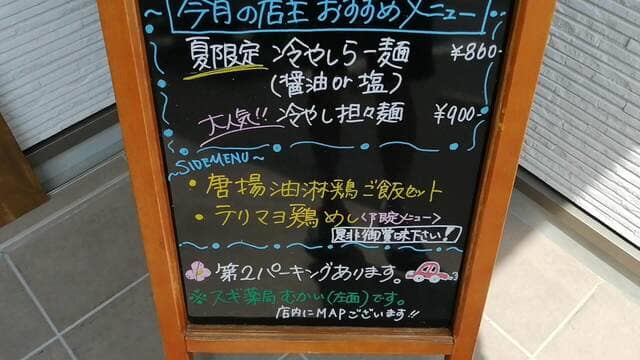 今月の店主おすすめメニュー
夏限定 冷やしらー麺 ¥860-
(醤油or塩)
大人気!! 冷やし担々麺 ¥900-
~SIDEMENU~
・唐揚油淋鶏ご飯セット
・テリマヨ鶏めし<限定メニュー>
是非御賞味下さい!
第2パーキングあります。
※スギ薬局むかい(左面)です。
店内にMAPございます!!